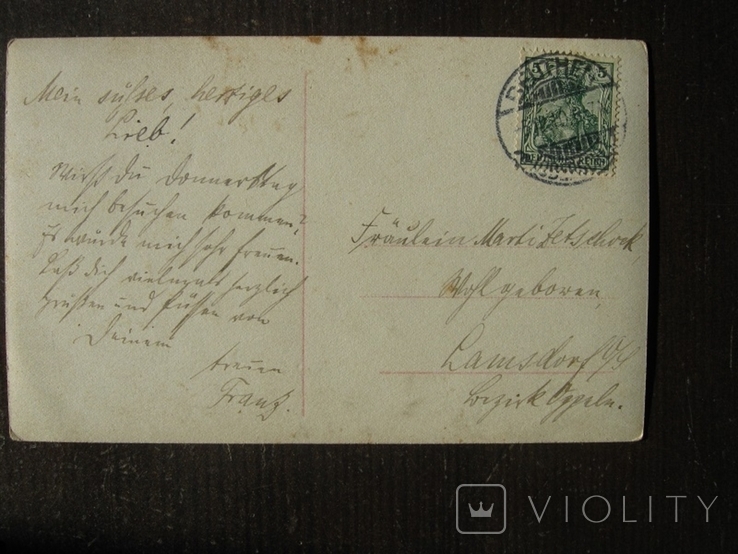 Mein süßes, herziges
Lieb!
Wirst du Donnerstag
mich besuchen kommen?
Es würde mich sehr freuen.
Laß dich vielmals herzlich
grüßen und küssen von
Deinem
treuen
Franz.
5 5
BEUTHEN
DEUTSCHES REICH
Fräulein Marti Zetschock
Wohlgeboren,
Lamsdorf O/S
Bezirk Oppeln.
VIOLITY